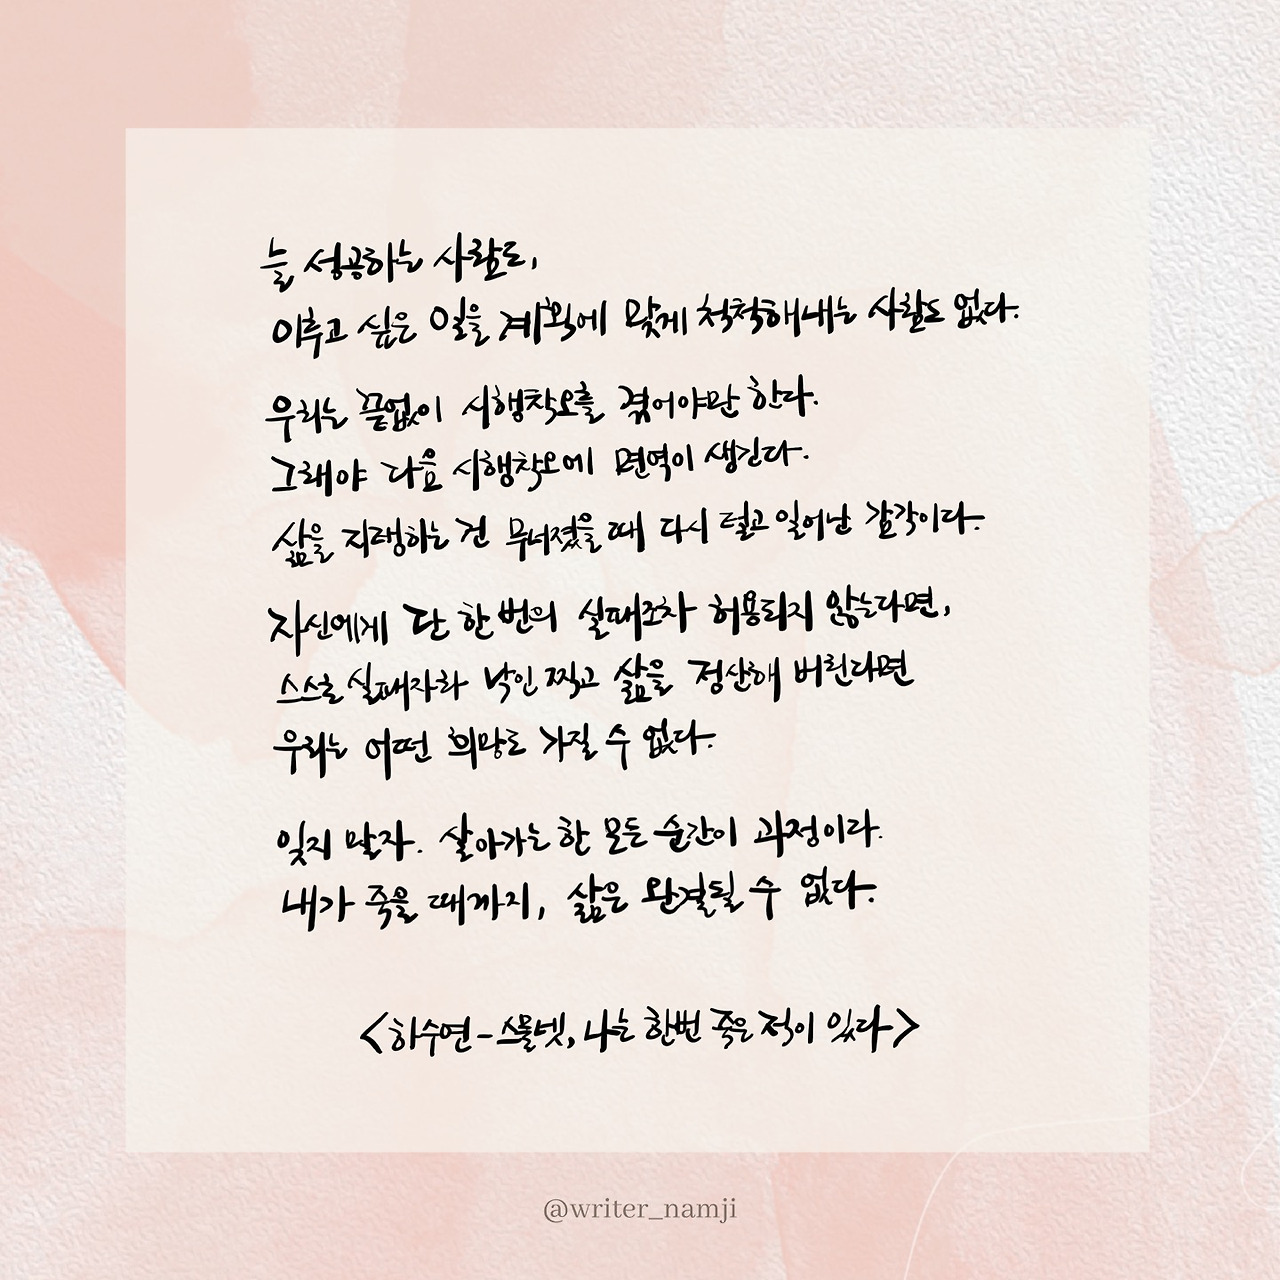 늘 성공하는 사람도,
이루고 싶은 일을 계획에 맞게 척척해내는 사람도 없다.
우리는 끝없이 시행착오를 겪어야만 한다.
그래야 다음 시행착오에 면역이 생긴다.
삶을 지탱하는 건 무너졌을 때 다시 털고 일어난 감각이다.
자신에게 단 한 번의 실패조차 허용되지 않는다면,
스스로 실패자라 낙인 찍고 삶을 정산해 버린다면
우리는 어떤 희망도 가질 수 없다.
잊지 말자. 살아가는 한 모든 순간이 과정이다.
내가 죽을 때까지, 삶은 완결될 수 없다.
<하수연-스물넷, 나는 한번 죽은 적이 있다>
@writer_namji